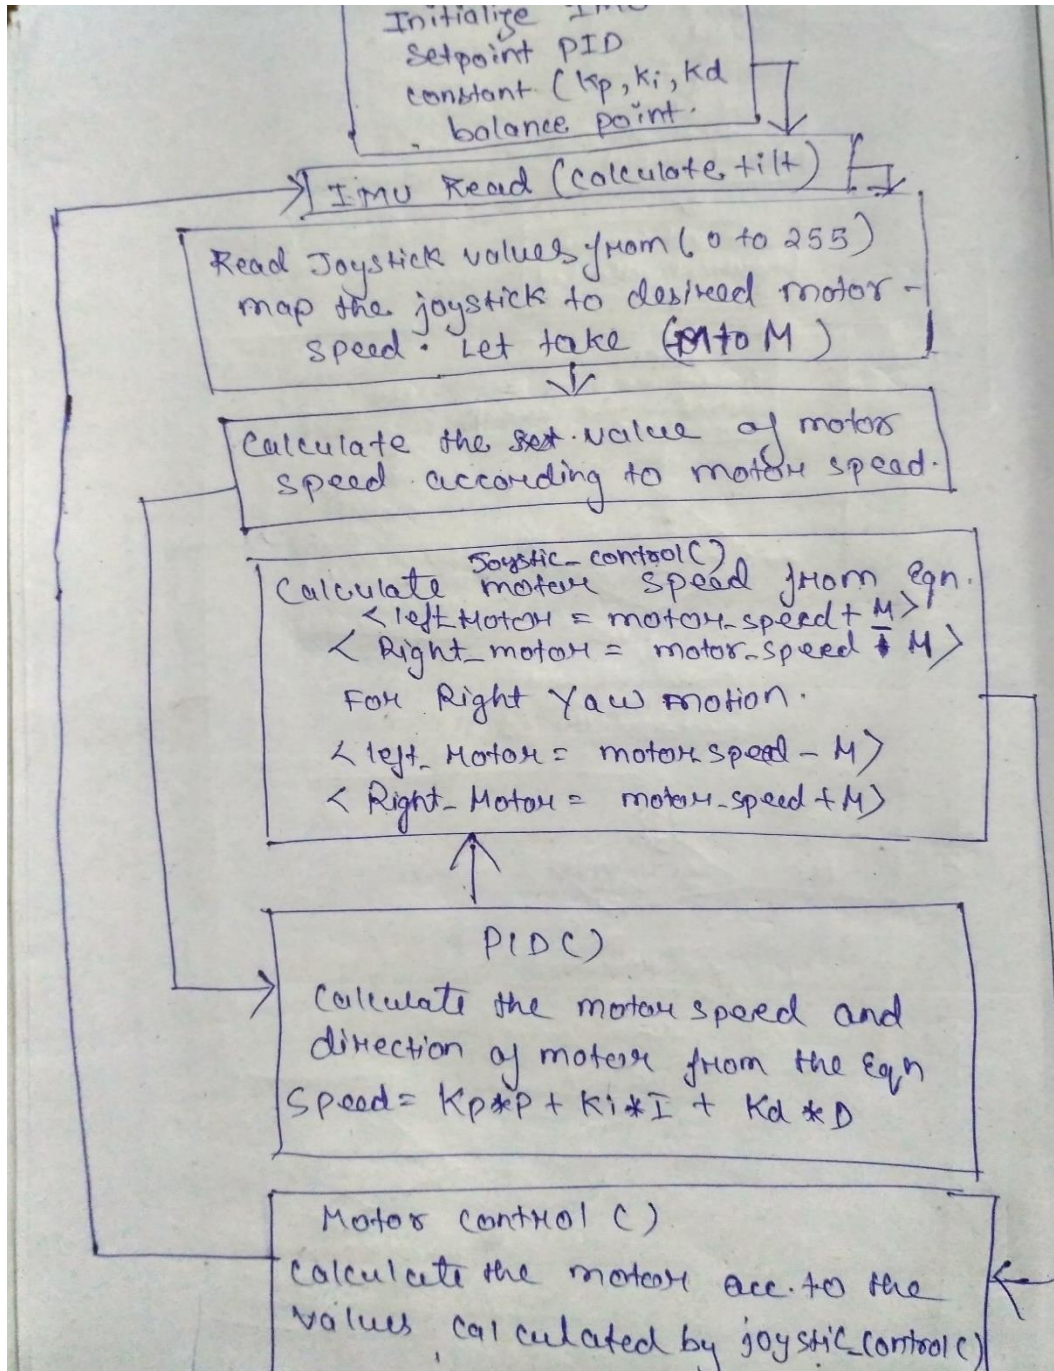 Initialize IMU
Setpoint PID
constant (Kp, Ki, Kd
balance point.
IMU Read (calculate tilt)
Read Joystick values from ( 0 to 255)
map the joystick to desired motor -
speed. Let take ( to M )
Calculate the set value of motor
speed according to motor speed.
Joystic_control()
Calculate motor speed from Eqn.
<left Motor = motor_speed + M>
< Right_motor = motor_speed M>
For Right Yaw motion.
<left_Motor = motor speed - M>
< Right_Motor = motor_speed + M>
PID()
Calculate the motor speed and
direction of motor from the Eqn
Speed = Kp*P + Ki*I + Kd *D
Motor control ()
Calculate the motor acc. to the
values calculated by joystic_control()